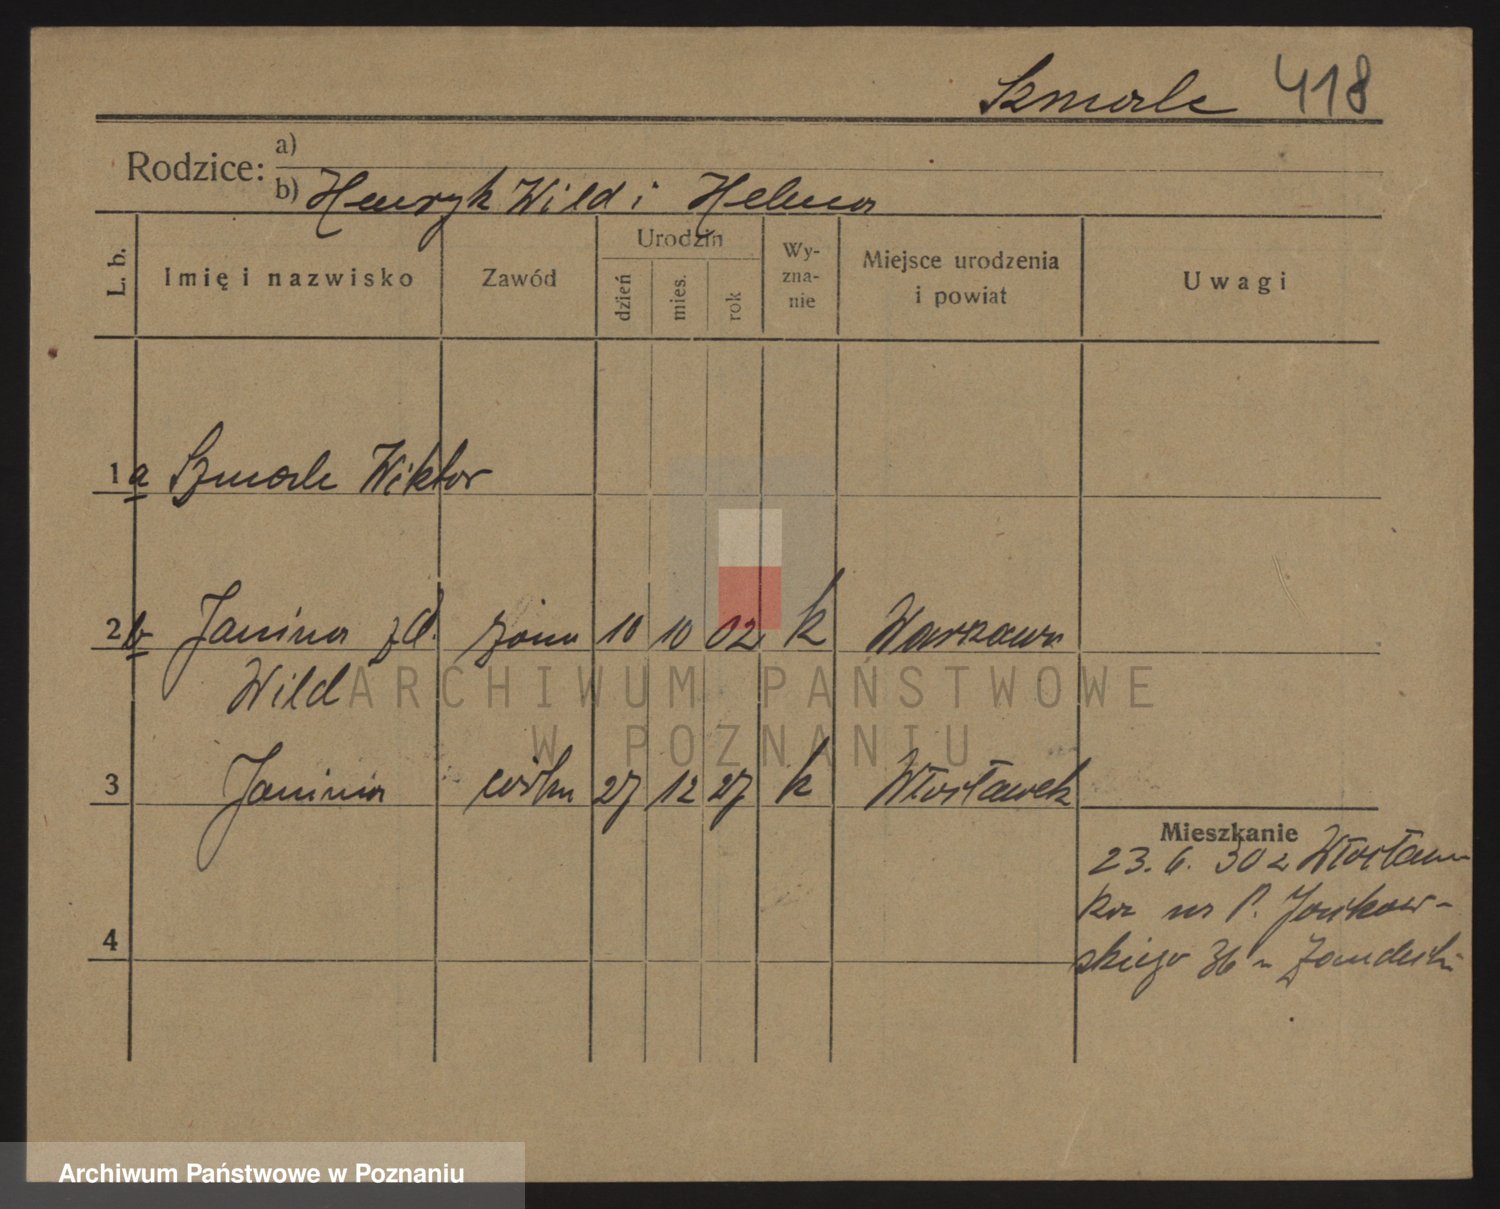 Szmale 418
Rodzice: a)
b) Henryk Wild i Helena
L. b. Imię i nazwisko Zawód Urodzin dzień mies. rok Wy-zna-nie Miejsce urodzenia i powiat Uwagi
1 a Szmale Wiktor
2 b Janina zd. żona 10 10 02 k Warszawa
Wild
ARCHIWUM PAŃSTWOWE
W POZNANIU
3 Janina córka 27 12 27 k Włocławek
Mieszkanie
23. 6. 30 z Włocław-
ka na P.
skiego 36 u
4
Archiwum Państwowe w Poznaniu